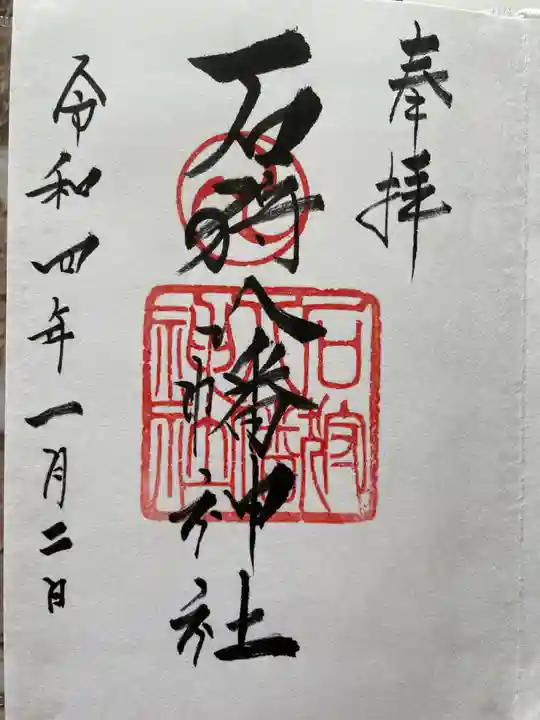 奉拝
石狩八幡神社
令和四年一月二日